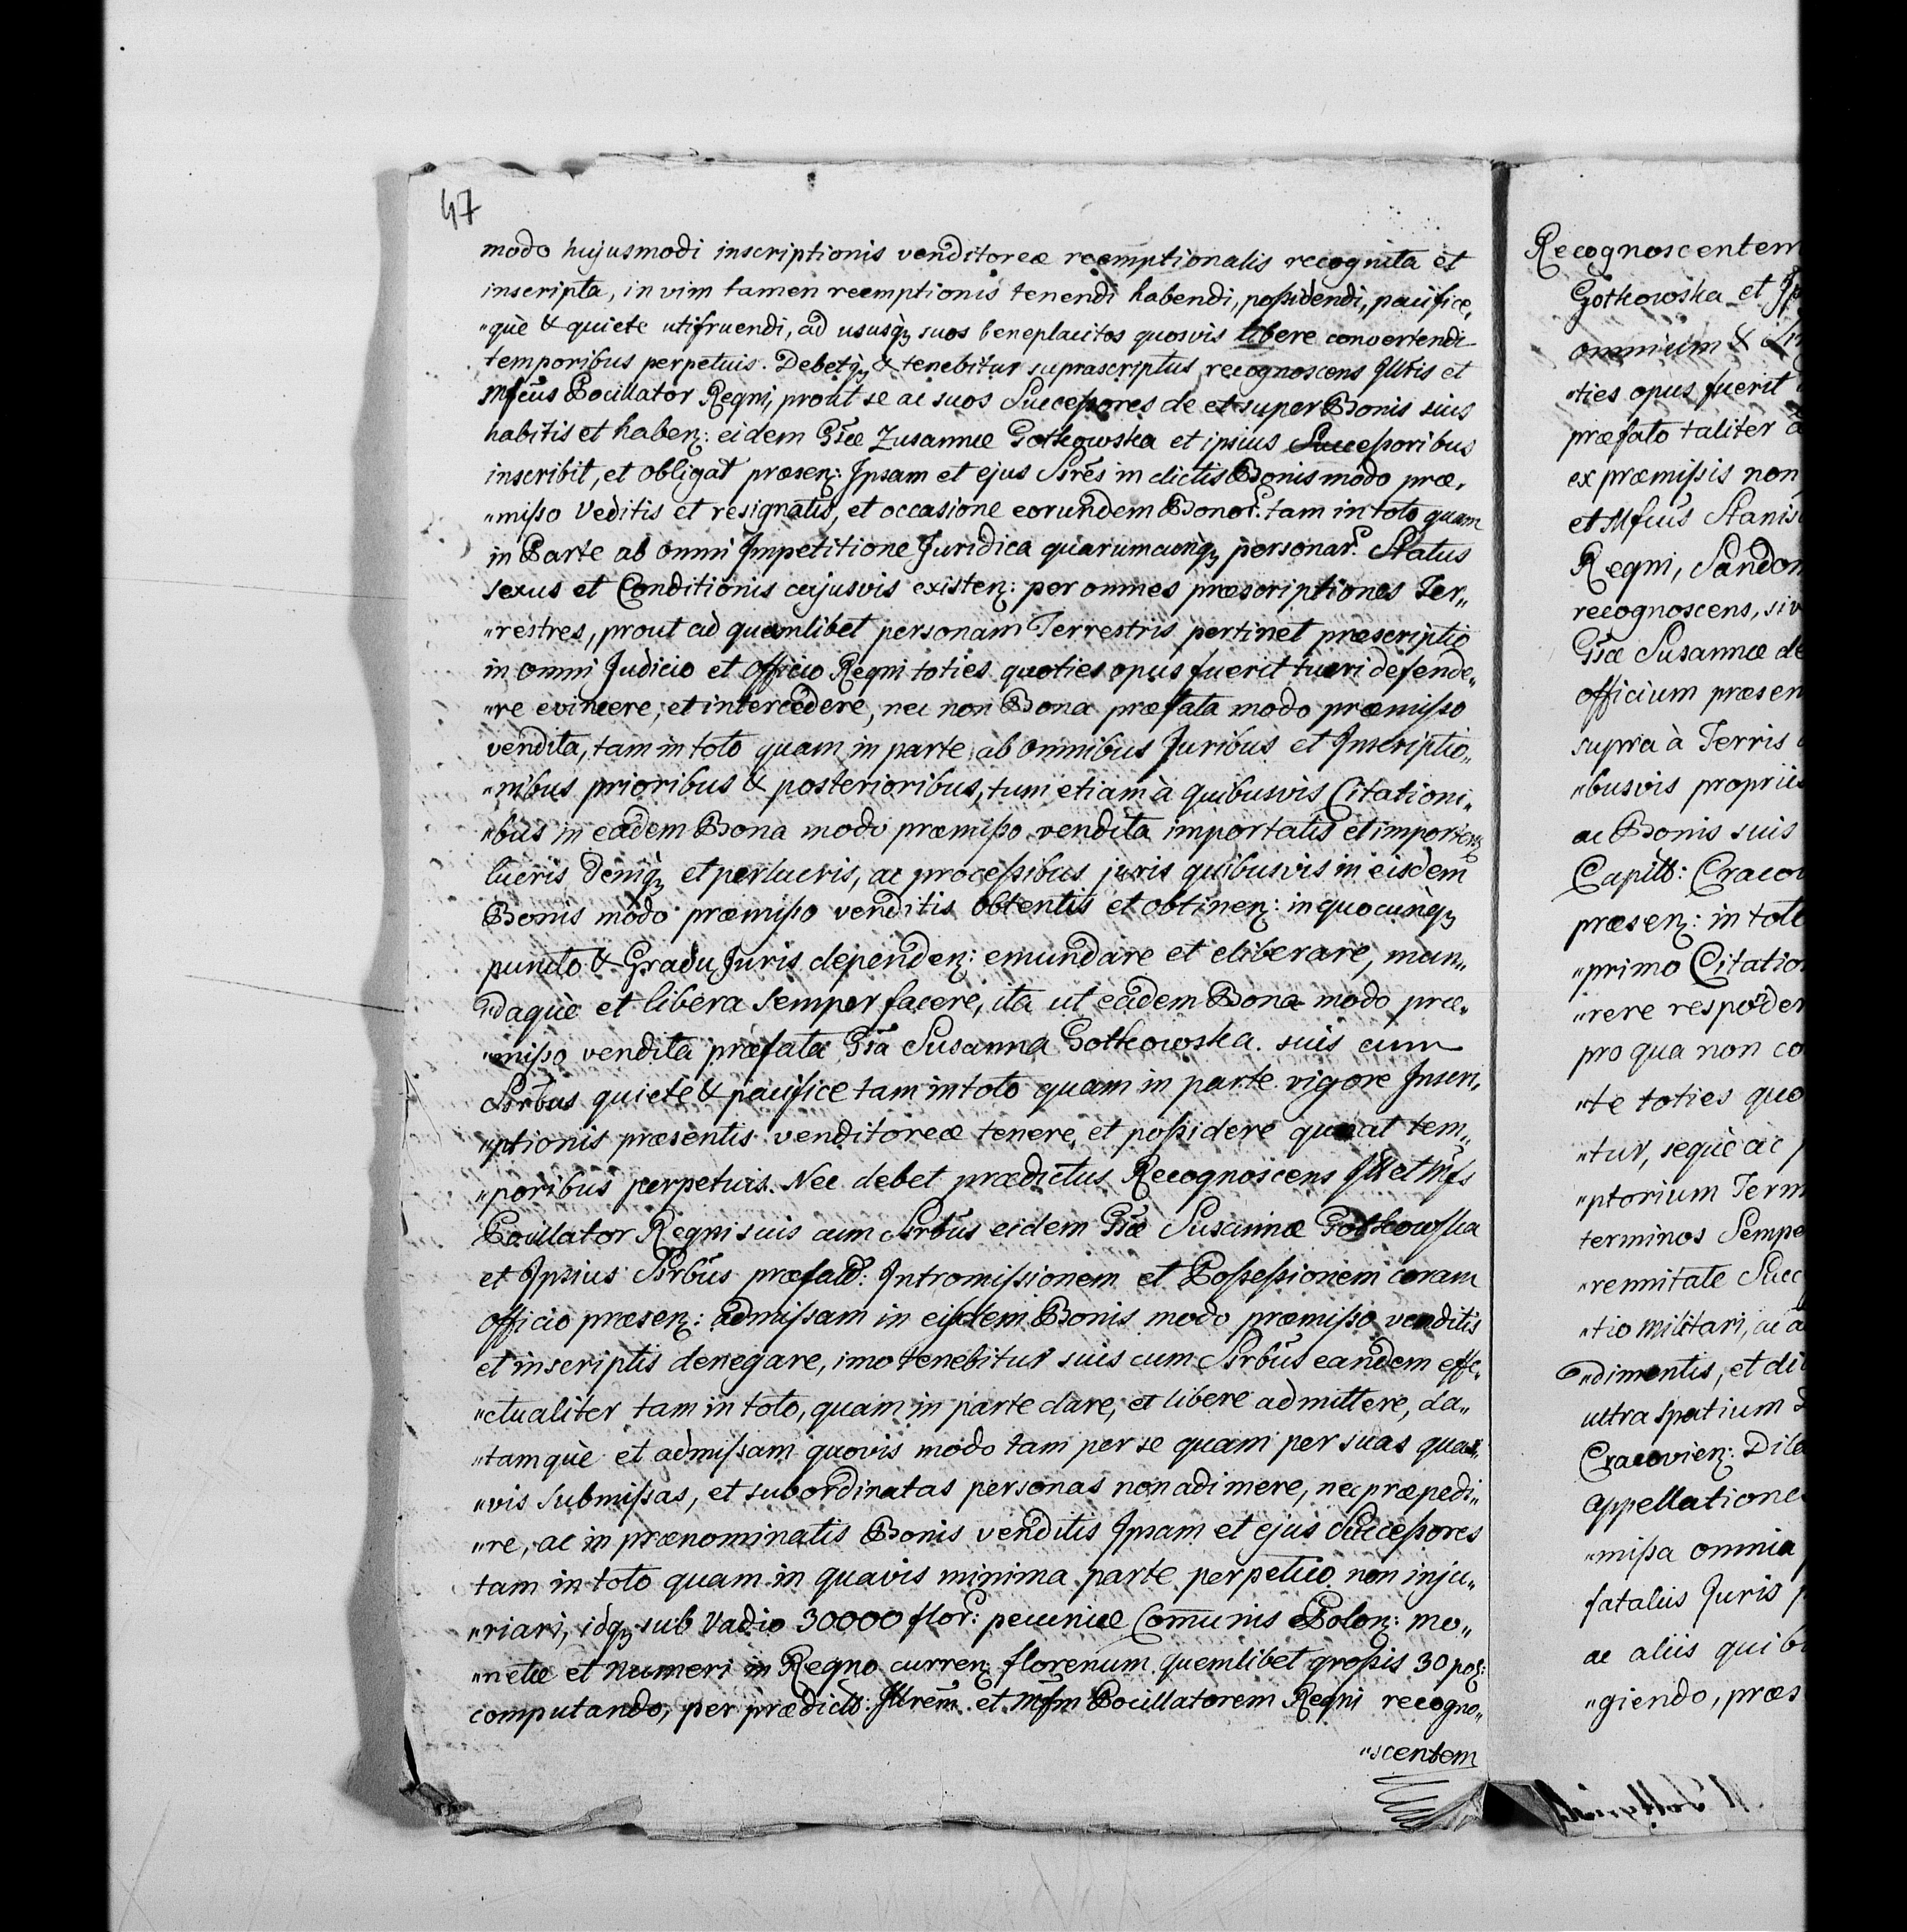 47
modo hujusmodi inscriptionis venditoreæ reemptionalis recognita et
inscripta, in vim tamen reemptionis tenendi habendi, poßidendi, pacifice,
"què & quiete utifruendi, ad ususq3 suos beneplacitos quosvis libere convertendi
temporibus perpetuis. Debetq3 & tenebitur suprascriptus recognoscens Illris et
Mfcus Pocillator Regni, prout se ac suos Succeßores de et super Bonis suis
habitis et haben: eidem Gsæ Zusannæ Gotkowska et ipsius Succeßoribus
inscribit, et obligat præsen: Ipsam et ejus Srēs in dictis Bonis modo præ,
"mißo Veditis et resignatis, et occasione eorundem Bonor: tam in toto quam
in Parte ab omni Impetitione Juridica quarumcunq3 personar: Status
sexus et Conditionis cujusvis existen: per omnes præscriptiones Ter"
"restres, prout ad quamlibet personam Terrestris pertinet præscriptio
in omni Judicio et Officio Regni toties quoties opus fuerit tueri defende"
"re evincere, et intercedere, nec non Bona præfata modo præmißo
vendita, tam in toto quam in parte ab omnibus Juribus et Inscriptio"
"nibus prioribus & posterioribus, tum etiam à quibusvis Citationi"
"bus in eadem Bona modo præmißo vendita importatis et importan
lucris deniq3 et perlucris, ac proceßibus juris quibusvis in eisdem
Bonis modo præmißo venditis obtentis et obtinen: in quocunq3
puncto & Gradu Juris dependen: emundare et eliberare, mun"
"daquè et libera semper facere, ita ut eadem Bona modo præ"
"mißo vendita præfata Gsa Susanna Gotkowska suis cum
Srbus quiete & pacifice tam in toto quam in parte vigore Inscri"
"ptionis præsentis venditoreæ tenere, et poßidere queat tem"
"poribus perpetuis. Nec debet prædictus Recognoscens Ill et Mfs
Pocillator Regni suis cum Srbus eidem Gsæ Susannæ Gotkowska
et Ipsius Srbus præfatd: Intromißionem et Poßeßionem coram
Officio præsen: admißam in eisdem Bonis modo præmißo venditis
et inscriptis denegare, imo tenebitur suis cum Srbus eandem effe"
"ctualiter tam in toto, quam in parte dare, et libere admittere, da"
"tamquè et admißam quovis modo tam per se quam per suas quas"
"vis submißas, et subordinatas personas non adimere, nec præpedi"
"re, ac in prænominatis Bonis venditis Ipsam et ejus Succeßores
tam in toto quam in quavis minima parte perpetuo non inju"
"riari, idq3 sub Vadio 30000 flor: pecuniæ Com̄unis Polon: mo"
"netæ et Numeri in Regno curren: florenum quemlibet großis 30 pol:
computando, per prædictd: Illrem et Mfm Pocillatorem Regni recogno"
"scentem
Recognoscentem
Gotkowska et
omnium &
"ties opus fuerit
præfato taliter
ex præmißis non
et Mfcus Stanis
Regni, Sandom
recognoscens, siv
Gsæ Susannæ de
officium præsen
supra à Terris
"busvis propriis
ac Bonis suis
Capitl: Cracov
præsen: in tot
"primo Citatio
"rere respoder
pro qua non co
"te toties quo
"tur, sequè ac
"ptorium Term
terminos Sempe
"rennitate Succ
"tio militari, ac a
"dimentis, et di
ultra spatium
Cracovien: Dila
appellatione
"mißa omnia
fataliis Juris
ac aliis quib
"giendo, præs